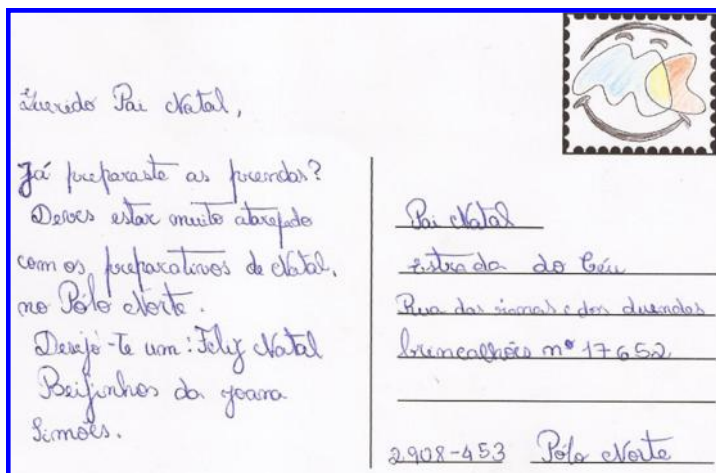 Querido Pai Natal,
Já preparaste as prendas?
Deves estar muito atarefado
com os preparativos de Natal,
no Pólo Norte.
Desejo-te um: Feliz Natal
Beijinhos da Joana
Simões.
Pai Natal
Estrada do Céu
Rua das e dos duendes
brincalhões nº 17652
2908-453 Pólo Norte